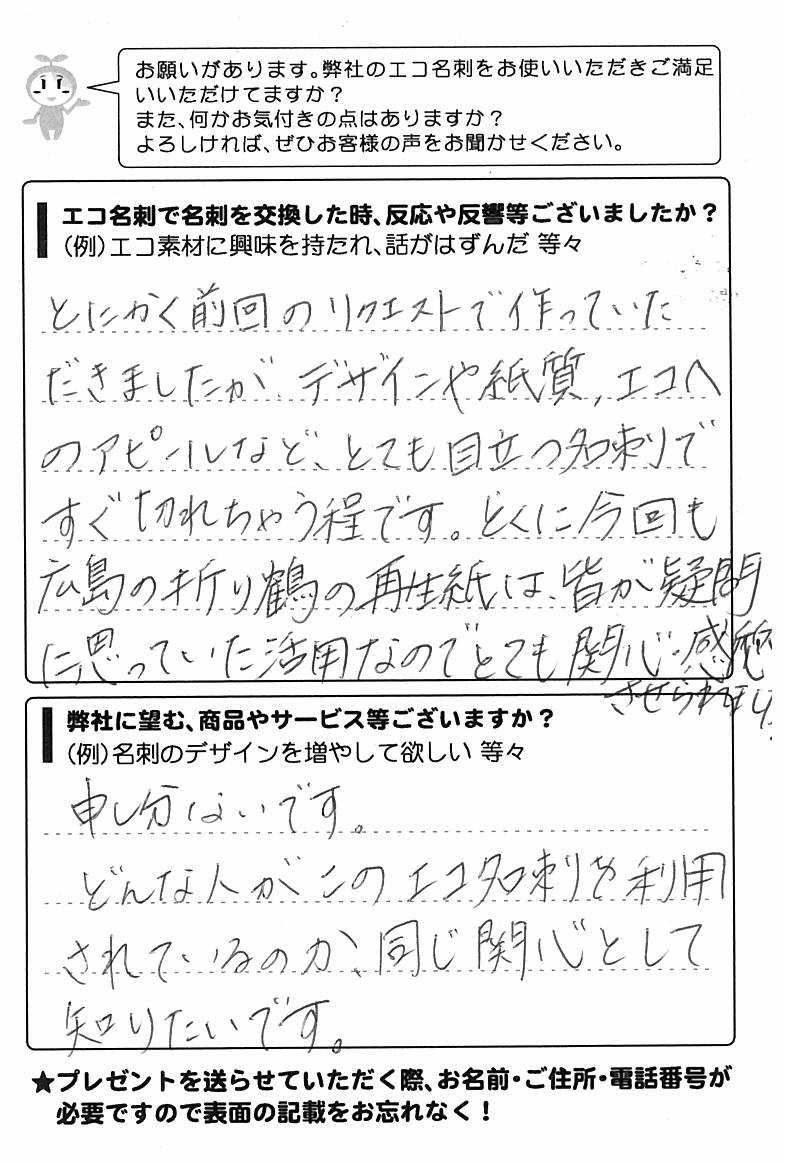 お願いがあります。弊社のエコ名刺をお使いいただきご満足
いいただけてますか？
また、何かお気付きの点はありますか？
よろしければ、ぜひお客様の声をお聞かせください。
エコ名刺で名刺を交換した時、反応や反響等ございましたか？
（例）エコ素材に興味を持たれ、話がはずんだ 等々
とにかく前回のリクエストで作っていた
だきましたが、デザインや紙質，エコへ
のアピールなど、とても目立つ名刺で
すぐ切れちゃう程です。とくに今回も
広島の折り鶴の再生紙は、皆が疑問
に思っていた活用なのでとても関心・感
させられまし
弊社に望む、商品やサービス等ございますか？
（例）名刺のデザインを増やして欲しい 等々
申し分ないです。
どんな人がこのエコ名刺を利用
されているのか、同じ関心として
知りたいです。
★プレゼントを送らせていただく際、お名前・ご住所・電話番号が
必要ですので表面の記載をお忘れなく！